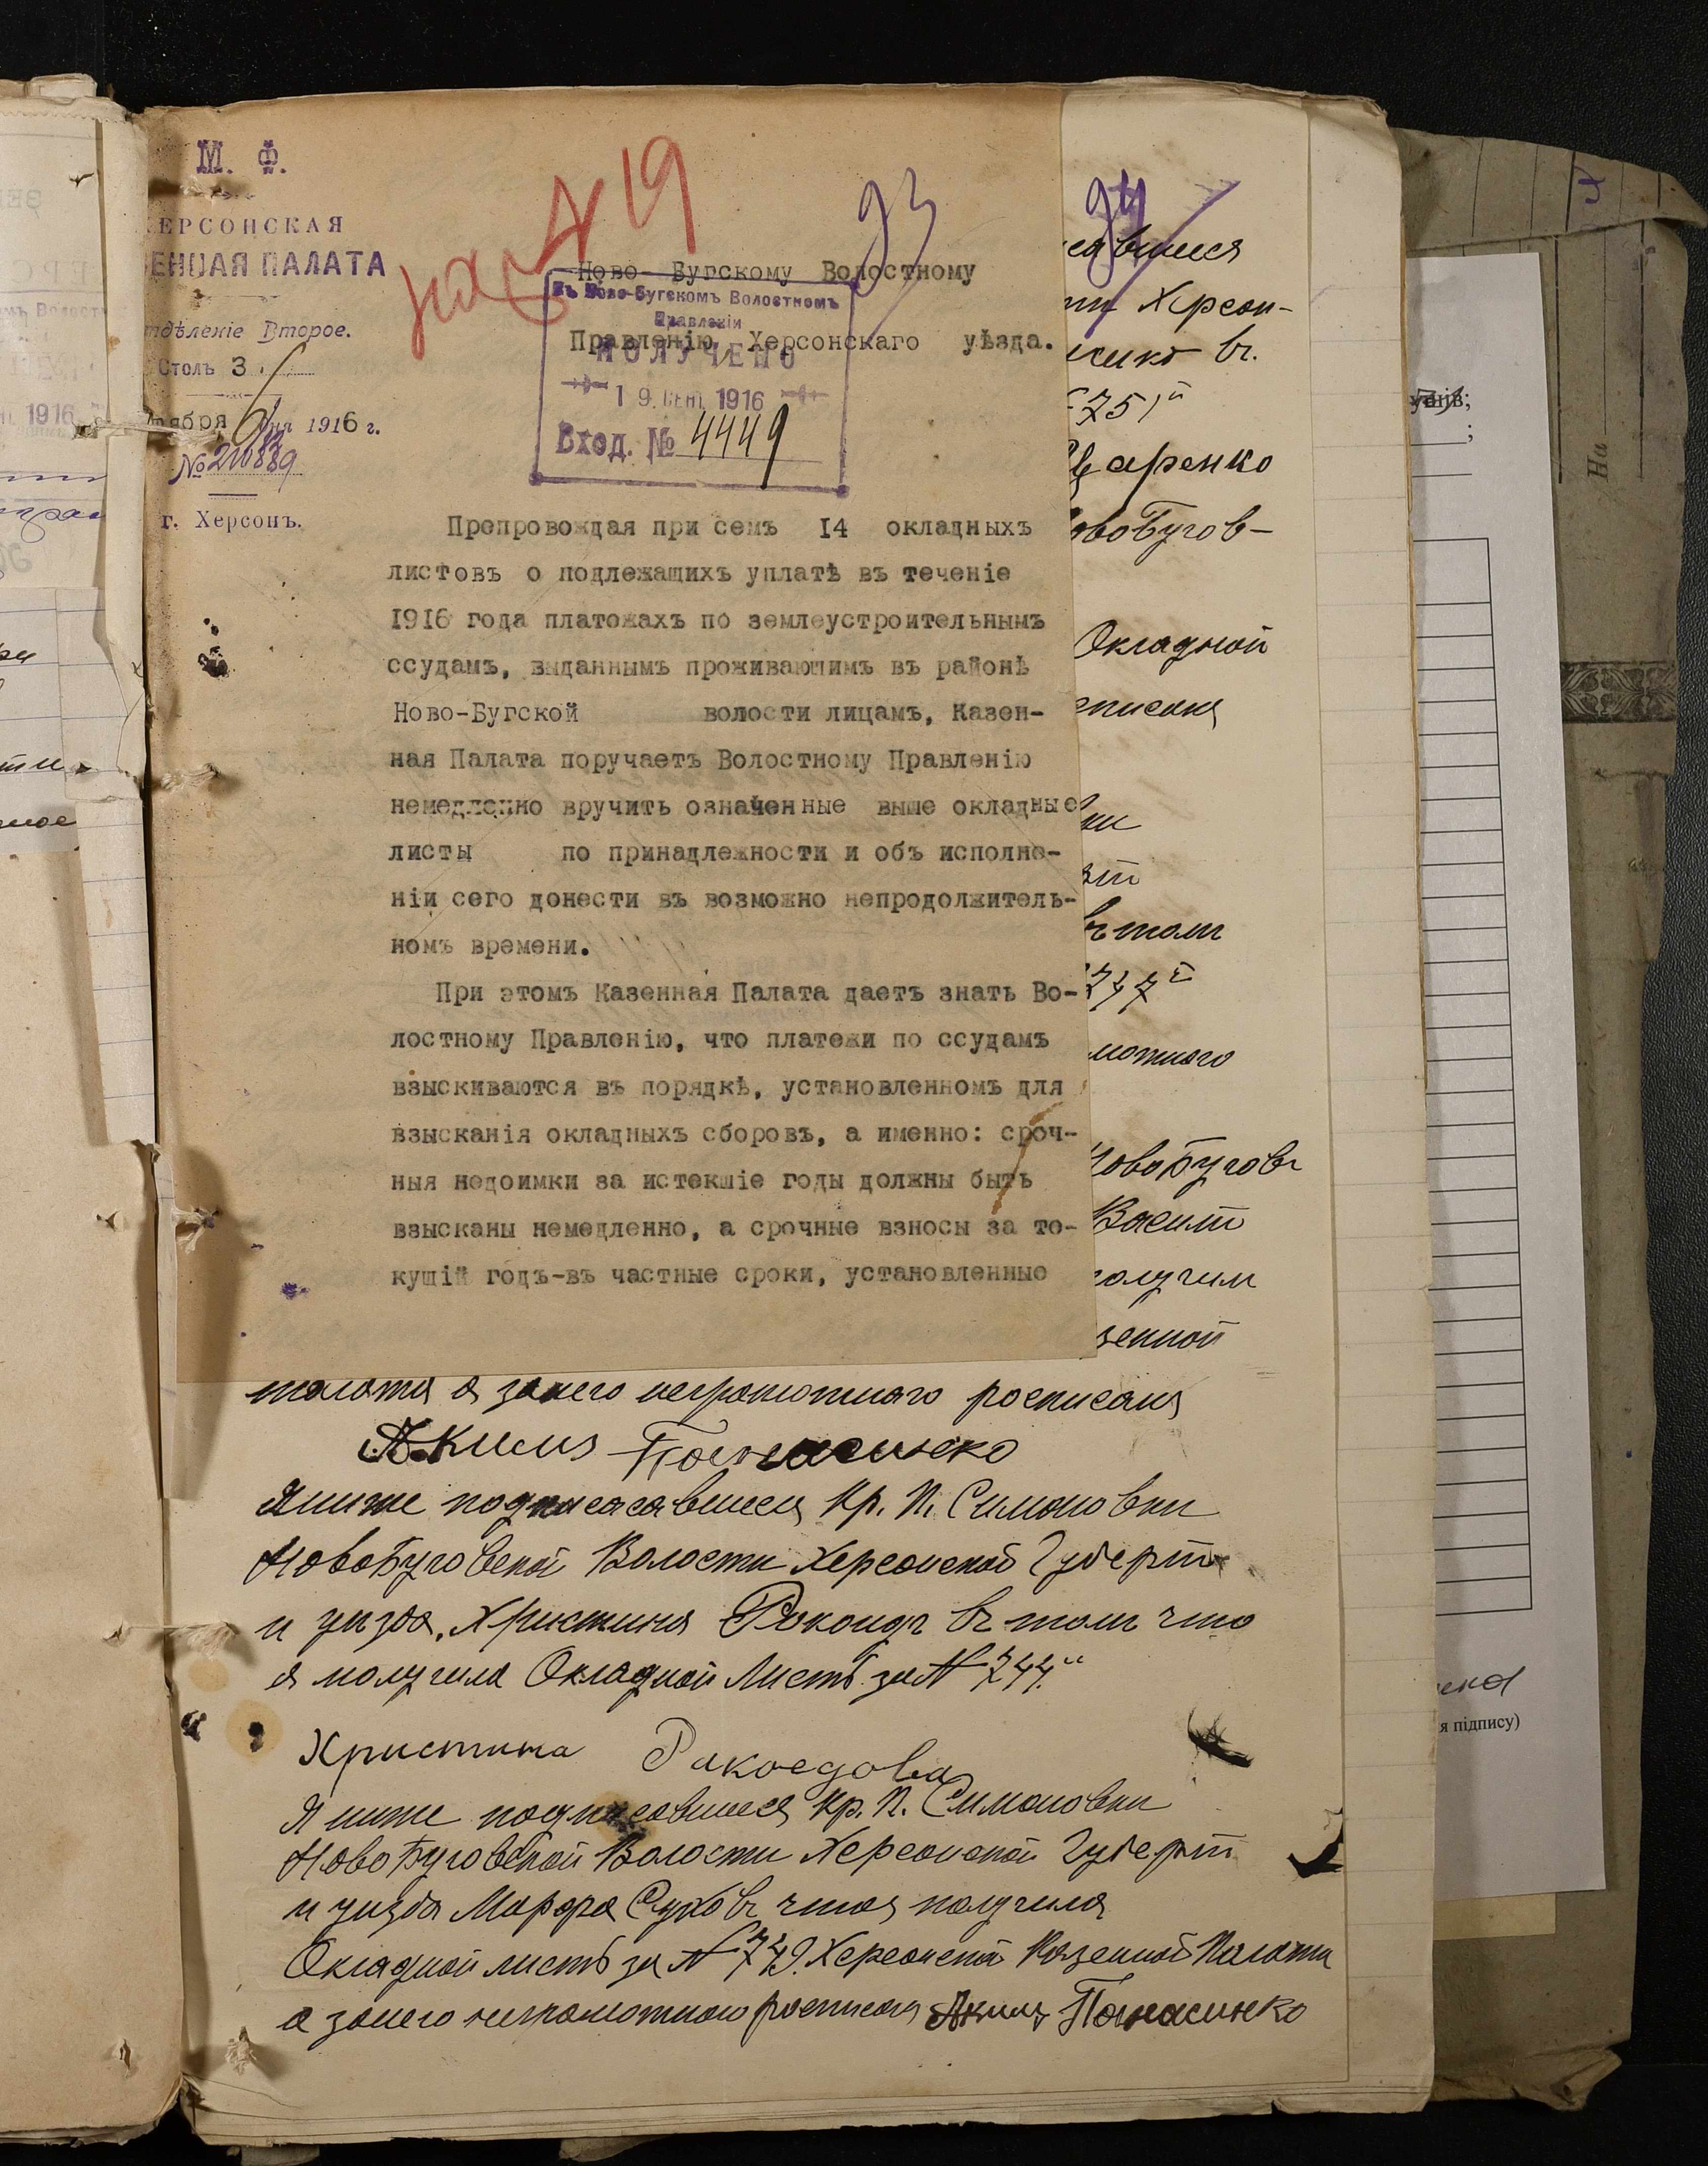 М. Ф.
ЕРСОНСКАЯ
ЕННАЯ ПАЛАТА
тдѣленіе Второе.
Столъ 3
тября дня 1916 г.
№
г. Херсонъ.
на № 19
93
94
Ново-Бугскому Волостному
Правленію, Херсонскаго уѣзда.
Въ Ново-Бугскомъ Волостномъ
Правленіи
ПОЛУЧЕНО
19 СЕН. 1916
Вход. № 4449
Препровождая при семъ 14 окладныхъ
листовъ о подлежащихъ уплатѣ въ теченіе
1916 года платежахъ по землеустроительнымъ
ссудамъ, выданнымъ проживающимъ въ районѣ
Ново-Бугской волости лицамъ, Казен-
ная Палата поручаетъ Волостному Правленію
немедленно вручить означенные выше окладные
листы по принадлежности и объ исполне-
ніи сего донести въ возможно непродолжитель-
номъ времени.
При этомъ Казенная Палата даетъ знать Во-
лостному Правленію, что платежи по ссудамъ
взыскиваются въ порядкѣ, установленномъ для
взысканія окладныхъ сборовъ, а именно: сроч-
ныя недоимки за истекшіе годы должны быть
взысканы немедленно, а срочные взносы за те-
кущій годъ-въ частные сроки, установленные
савшися
Херсон-
въ
751
Царенко
овоБугов-
Окладной
списаня
ни
в том
747
мотного
НовоБугов
Васит
получил
зенной
палаты а занего неграмотного росписаня
Аким Понасинко
Я ниже подписасавшися Кр. П. Симоновки
НовоБуговской Волости Херсонской Губерт
и уизда, Христиня Ракоидъ в том что
я получила Окладной Листъ за № 744.
Христина Ракоедова
Я ниже подписавшися Кр. П. Симоновки
НовоБуговской Волости Херсонской Губерт
и уизда Марфа Сухов что я получила
Окладной листъ за № 749. Херсонской Казенной Палаты
а занего неграмотного росписаня Аким Понасинко
1916
На
я підпису)